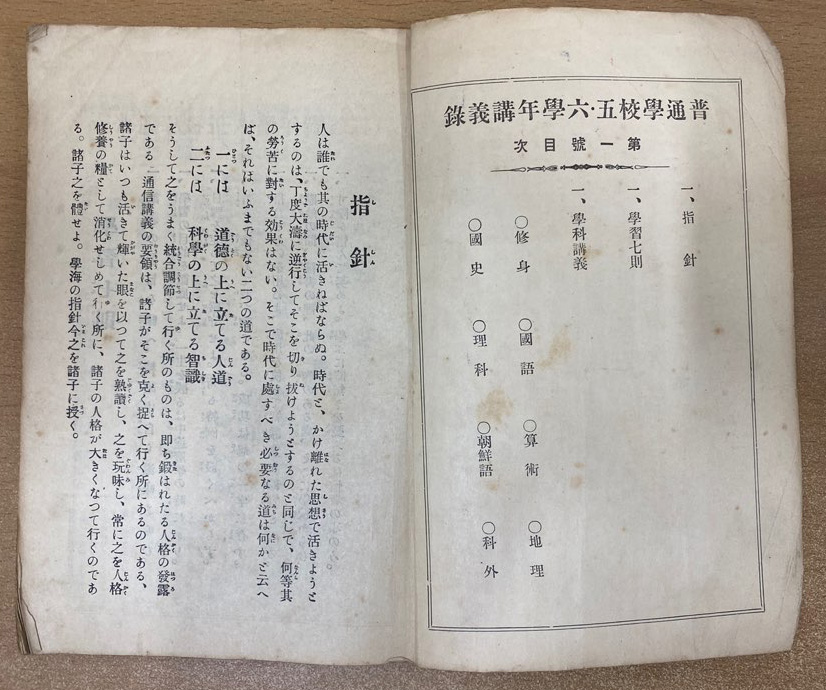 普通學校五·六學年講義錄
第一號目次
一、指針
一、學習七則
一、學科講義
○修身 ○國語 ○算術 ○地理
○國史 ○理科 ○朝鮮語 ○科外
指針
人は誰でも其の時代に活きねばならぬ。時代と、かけ離れた思想で活きようと
するのは、丁度大濤に逆行してそこを切り拔けようとするのと同じで、何等其
の勞苦に對する効果はない。そこで時代に處すべき必要なる道は何かと云へ
ば、それはいふまでもない二つの道である。
一には 道德の上に立てる人道
二には 科學の上に立てる智識
そうして之をうまく統合調節して行く所のものは、即ち鍛はれたる人格の發露
である 通信講義の要領は、諸子がそこを克く捉へて行く所にあるのである、
諸子はいつも活きて輝いた眼を以つて之を熟讀し、之を玩味し、常に之を人格
修養の糧として消化せしめて行く所に、諸子の人格が大きくなつて行くのであ
る。諸子之を體せよ。學海の指針今之を諸子に授く。